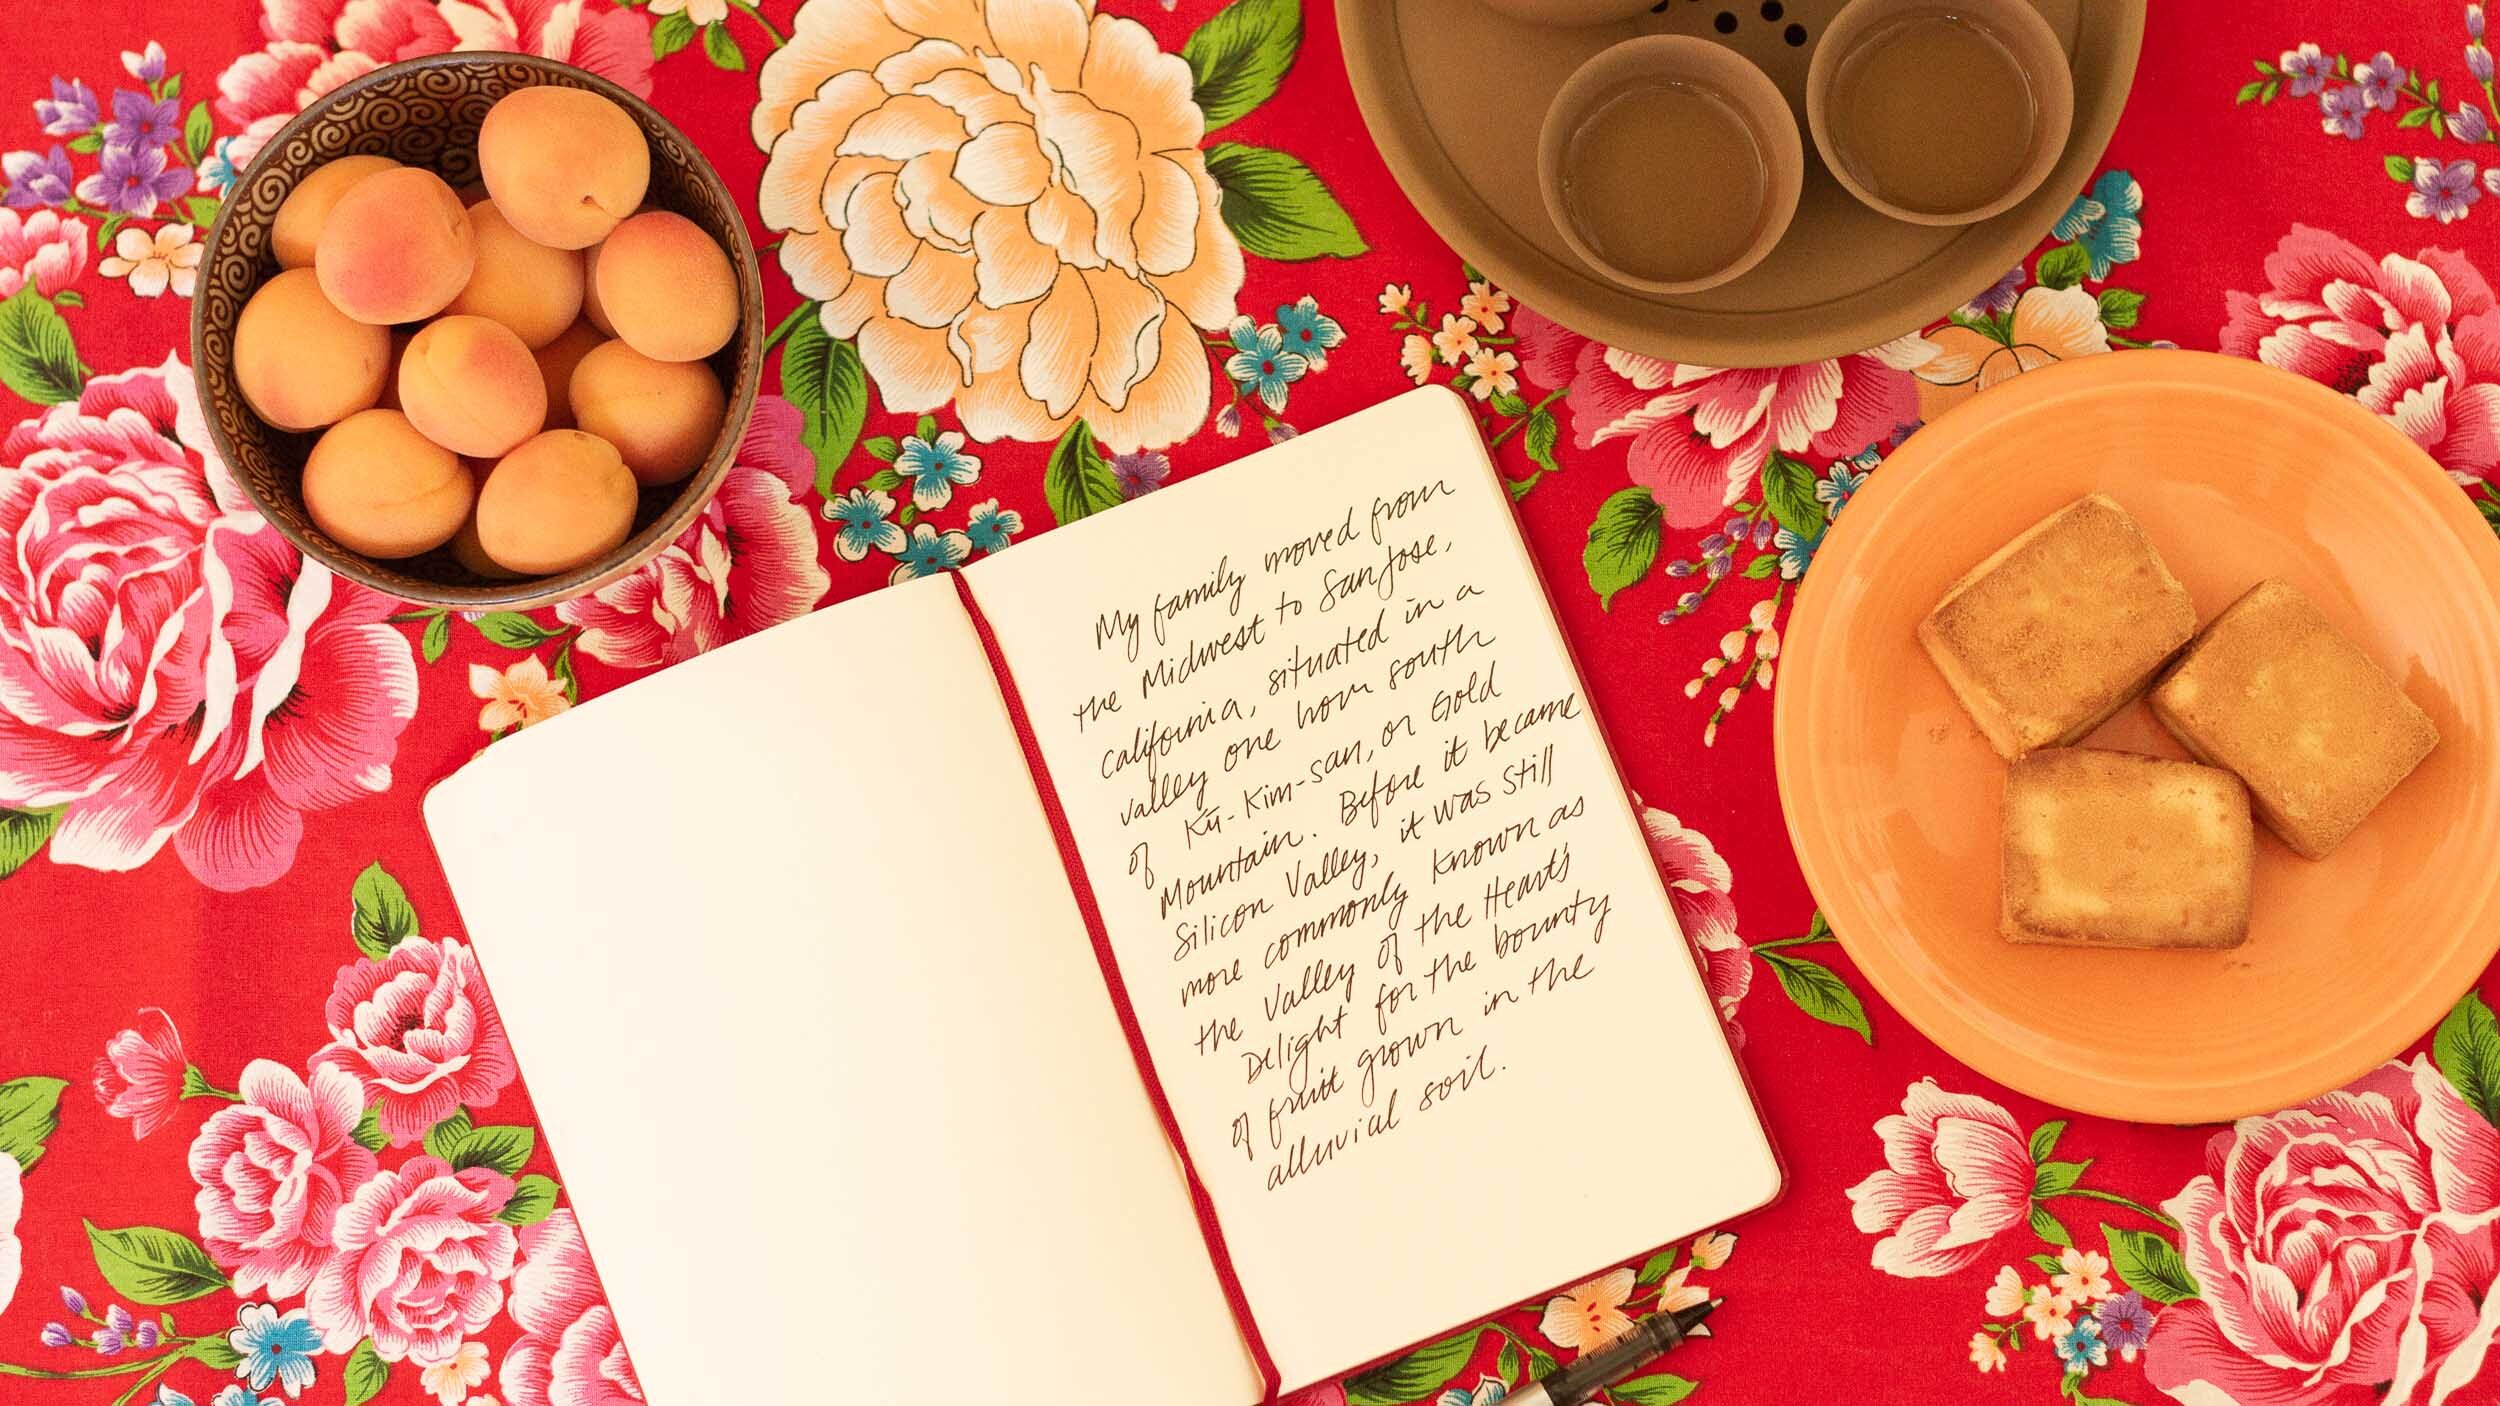 My family moved from
the Midwest to San Jose,
California, situated in a
valley one hour south
of Kū-Kim-san, or Gold
Mountain. Before it became
Silicon Valley, it was still
more commonly known as
the Valley of the Heart's
Delight for the bounty
of fruit grown in the
alluvial soil.